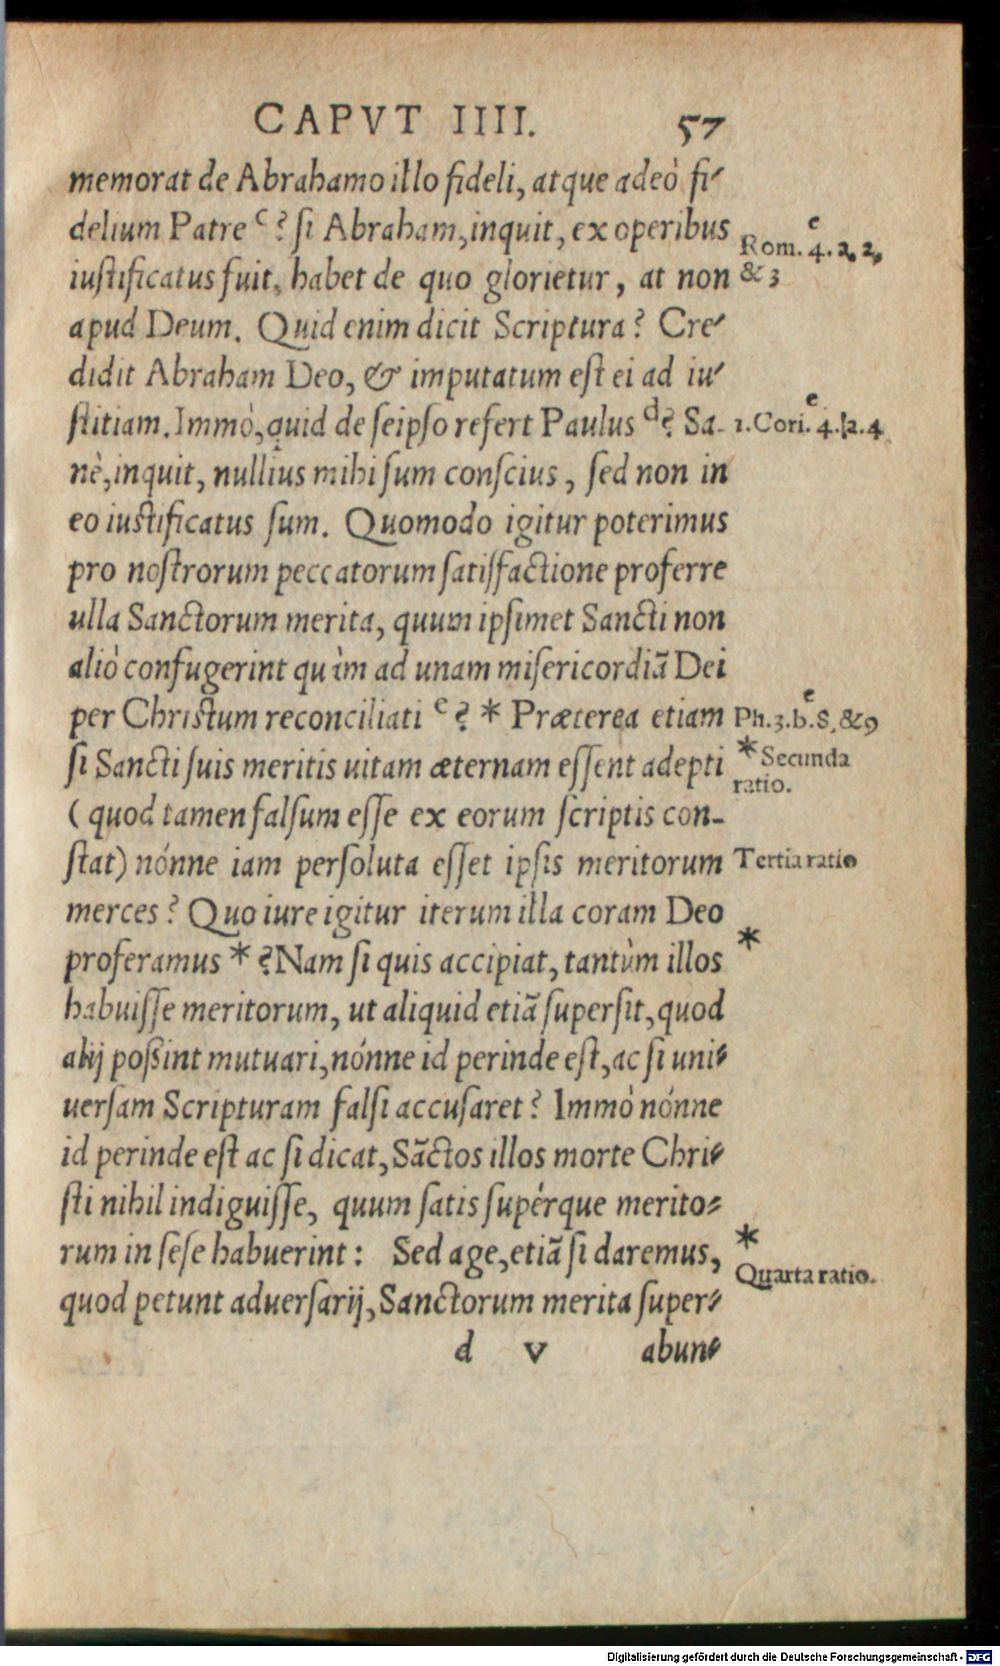 CAPVT IIII. 57
memorat de Abrahamo illo fideli, atque adeò fi-
delium Patre ᶜ? si Abraham, inquit, ex operibus
iustificatus fuit, habet de quo glorietur, at non
apud Deum. Quid enim dicit Scriptura? Cre-
didit Abraham Deo, & imputatum est ei ad iu-
stitiam. Immò, quid de seipso refert Paulus ᵈ? Sa-
nè, inquit, nullius mihi sum conscius, sed non in
eo iustificatus sum. Quomodo igitur poterimus
pro nostrorum peccatorum satisfactione proferre
ulla Sanctorum merita, quum ipsimet Sancti non
aliò confugerint quàm ad unam misericordiã Dei
per Christum reconciliati ᵉ? * Præterea etiam
si Sancti suis meritis uitam æternam essent adepti
(quod tamen falsum esse ex eorum scriptis con-
stat) nónne iam persoluta esset ipsis meritorum
merces? Quo iure igitur iterum illa coram Deo
proferamus *? Nam si quis accipiat, tantùm illos
habuisse meritorum, ut aliquid etiã supersit, quod
alij poßint mutuari, nónne id perinde est, ac si uni-
uersam Scripturam falsi accusaret? Immò nónne
id perinde est ac si dicat, Sãctos illos morte Chri-
sti nihil indiguisse, quum satis supérque merito-
rum in sese habuerint: Sed age, etiã si daremus,
quod petunt aduersarij, Sanctorum merita super-
d v abun-
e
Rom. 4. 2, 2,
& 3
e
1. Cori. 4. 2. 4
e
Ph. 3. b. 8, & 9
* Secunda
ratio.
Tertia ratio
*
*
Quarta ratio.
Digitalisierung gefördert durch die Deutsche Forschungsgemeinschaft - DFG